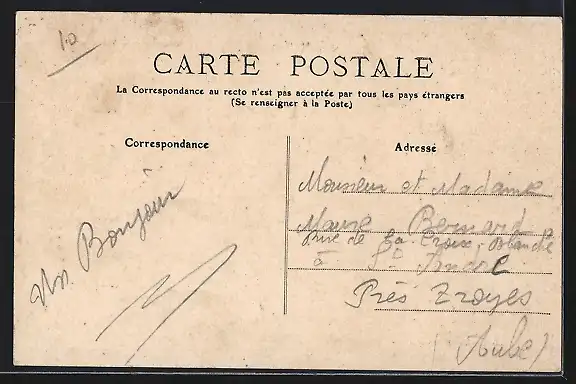 10
CARTE POSTALE
La Correspondance au recto n'est pas acceptée par tous les pays étrangers
(Se renseigner à la Poste)
Correspondance
Adresse
Un Bonjour
Monsieur et Madame
Bernard
rue de la Croix, Blanche
à St André
Près Troyes
(Aube)